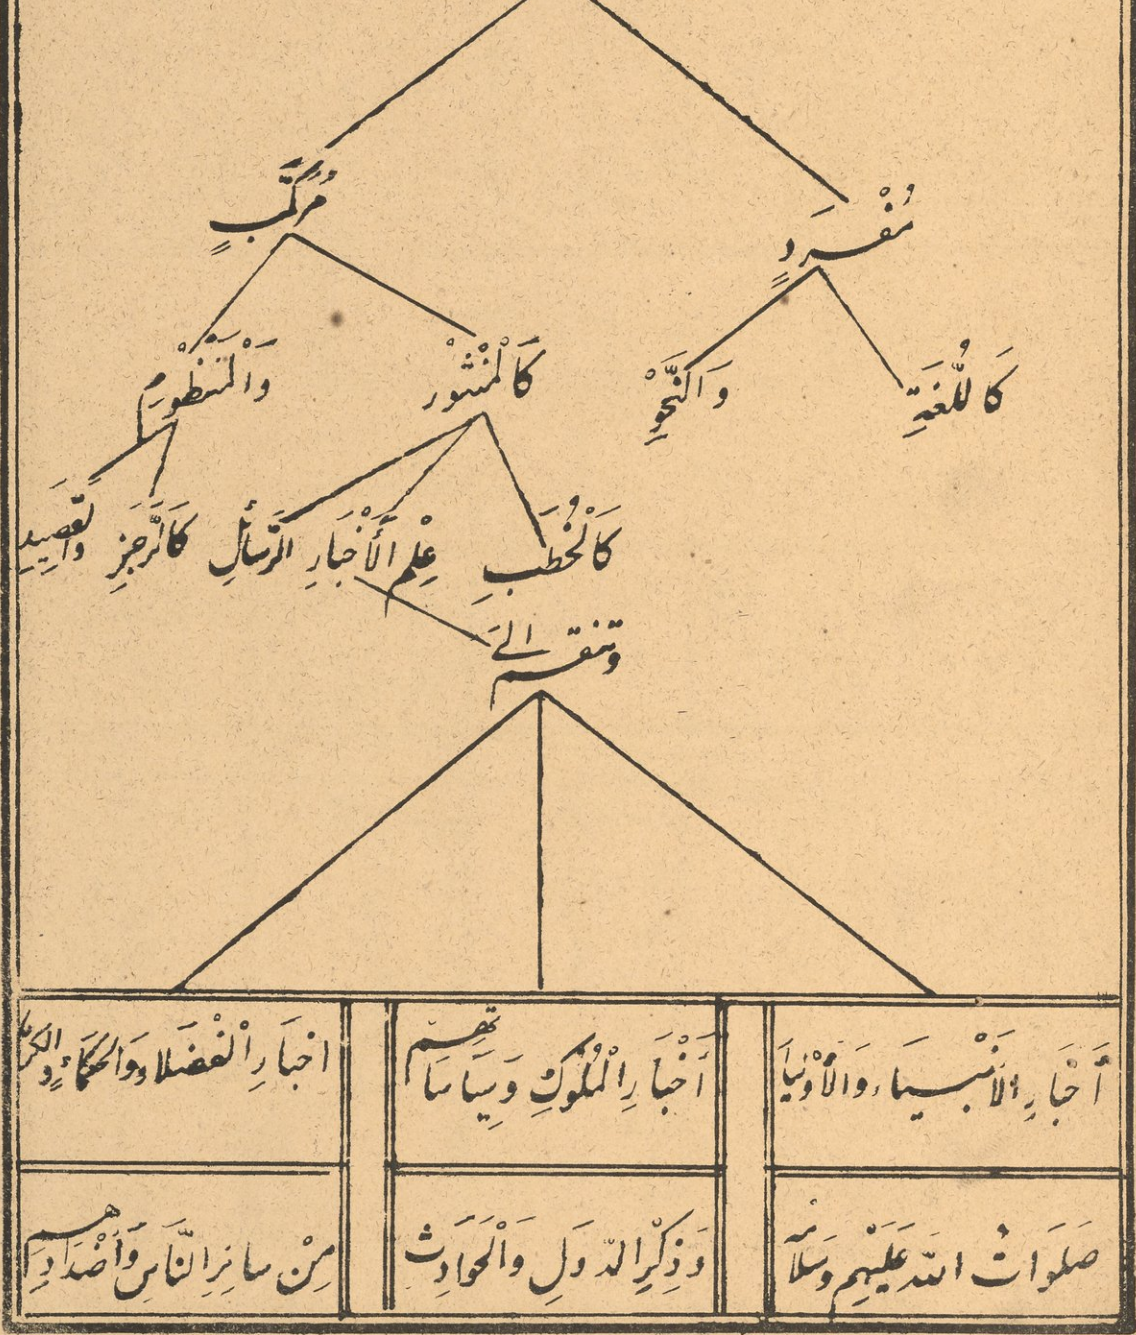 مُفْرَدٍ
مُرَكَّبٍ
كَاللُّغَةِ
وَالنَّحْوِ
كَالْمَنْثُورِ
وَالْمَنْظُومِ
كَالْخُطَبِ
عِلْمِ الْأَخْبَارِ
الرَّسَائِلِ
كَالرَّجَزِ
وَالقَصِيدِ
وتنقسم الى
أَخْبَارِ الْأَنْبِيَاءِ وَالْأَوْلِيَاءِ
صَلَوَاتُ اللَّه عَلَيْهِم وَسَلَامُ
أَخْبَارِ الْمُلُوكِ وَسِيَاسَاتهم
وَذِكْرِ الدُّوَلِ وَالْحَوَادِث
اخْبَارِ الْفُضَلَاءِ وَالحُكَمَاءِ
مِنْ سائِرِ النَّاسِ وَأَضْدَادِهم